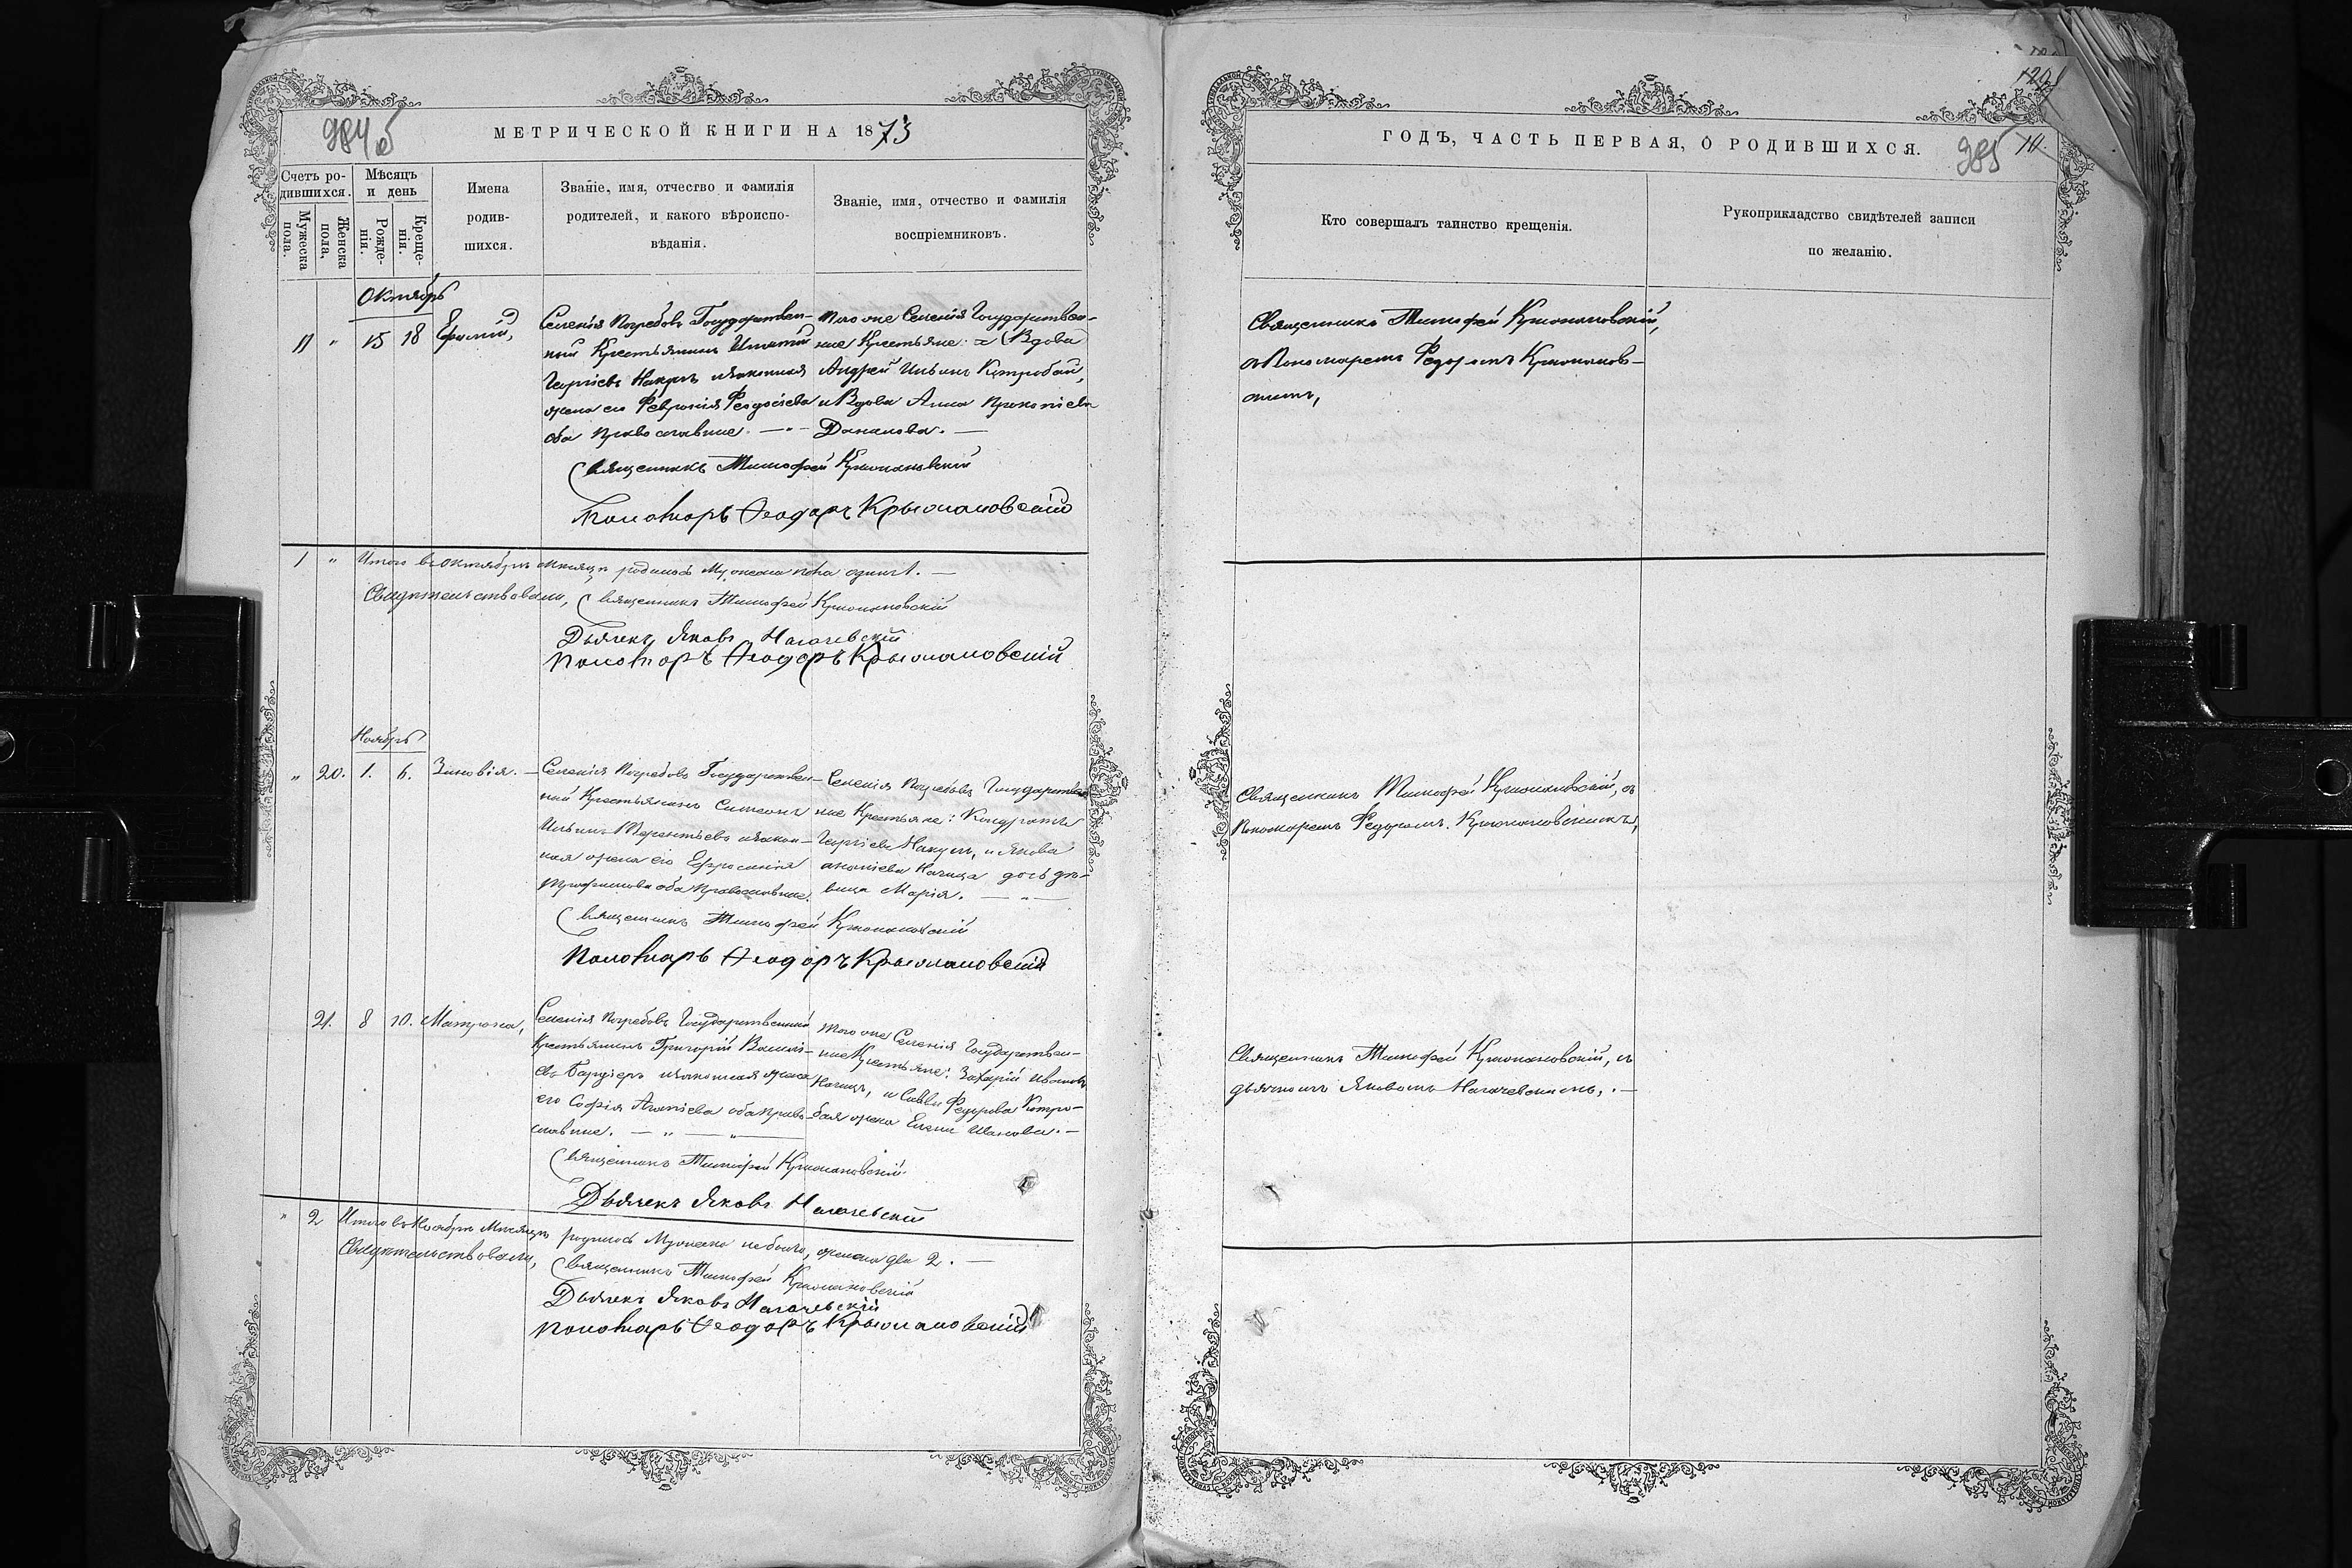 984 об
МЕТРИЧЕСКОЙ КНИГИ НА 1873
Счетъ ро-
дившихся.
Мужеска
пола.
Женска
пола.
Мѣсяцъ
и день
Рожде-
нія.
Креще-
нія.
Имена
родив-
шихся.
Званіе, имя, отчество и фамилія
родителей, и какого вѣроиспо-
вѣданія.
Званіе, имя, отчество и фамилія
воспріемниковъ.
Октябрь
11 " 15 18 Ефимій,
Селенія Погребовъ Государствен-
ный Крестьянинъ Игнатій
Георгіевъ Накулъ и законная
жена его Февронія Феодосіева
оба православные. — " —
того же Селенія Государствен-
ные Крестьяне:
Андрей Ильинъ Котробай,
и Вдова Анна Прокопіева
Священникъ Тимофей Крыжановскій
Пономарь Ѳеодоръ Крыжановскій
1 " Итого въ октябрѣ мѣсяцѣ родилось Мужеска пола одинъ 1. —
Свидѣтельствовали, Священникъ Тимофей Крыжановскій
Дьячекъ Яковъ Нагачевскій
Пономарь Ѳеодоръ Крыжановскій
Ноябрь
" 20. 1. 6. Зиновія. —
Селенія Погребовъ Государствен-
ный Крестьянинъ Симеонъ
Ильинъ Терентьевъ и закон-
ная жена его Ефросинія
Трофимова оба Православные.
Селенія Погребовъ Государствен
ные Крестьяне: Кондратъ
Георгіевъ Накулъ, и Якова
дочь дѣ-
вица Марія. — " —
Священникъ Тимофей Крыжановскій
Пономарь Ѳеодоръ Крыжановскій
21. 8 10. Матрона,
Селенія Погребовъ Государственный
Крестьянинъ Григорій Василі-
евъ и законная жена
его Софія оба право-
славные. — " — " —
Того же Селенія Государствен-
ные Крестьяне: Захарій Ивановъ
и Саввы Федорова Котро-
бая жена Елена Иванова. —
Священникъ Тимофей Крыжановскій.
Дьячекъ Яковъ Нагачевскій
" 2 Итого въ Ноябрѣ Мѣсяцѣ родилось Мужеска не было, женска два 2. —
Свидѣтельствовали, Священникъ Тимофей Крыжановскій
Дьячекъ Яковъ Нагачевскій
Пономарь Ѳеодоръ Крыжановскій
ГОДЪ, ЧАСТЬ ПЕРВАЯ, О РОДИВШИХСЯ.
985
10.
Кто совершалъ таинство крещенія.
Рукоприкладство свидѣтелей записи
по желанію.
Священникъ Тимофей Крыжановскій,
съ Пономаремъ Федоромъ Крыжановс-
кимъ,
Священникъ Тимофей Крыжановскій, съ
Пономаремъ Федоромъ Крыжановскимъ,
Священникъ Тимофей Крыжановскій, съ
дьячкомъ Яковомъ Нагачевскимъ, . —